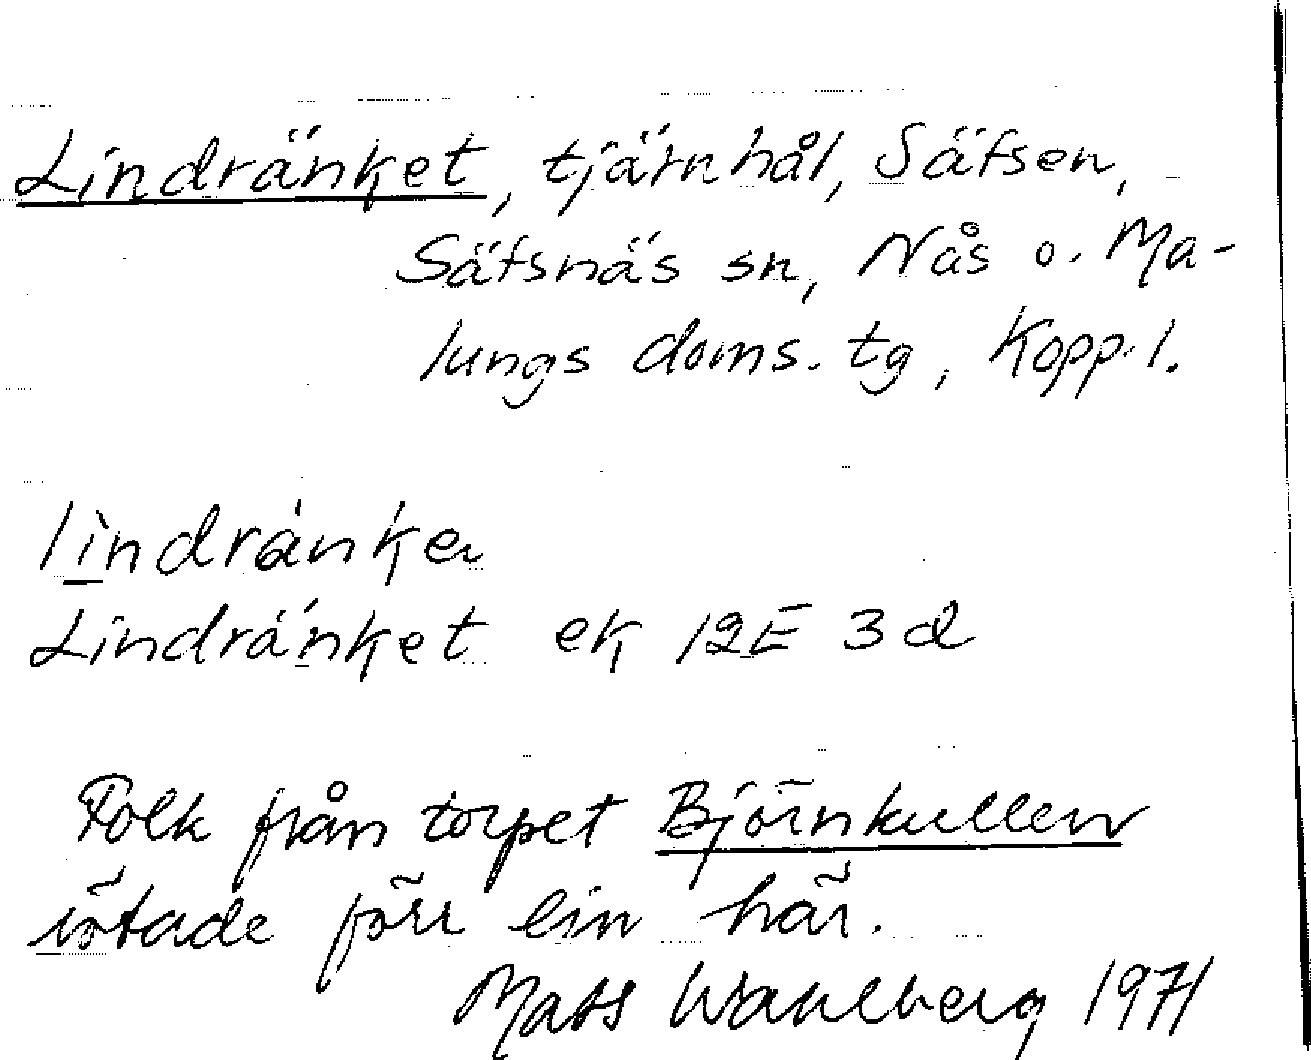 Lindränket, tjärnhål, Säfsen,
Säfsnäs sn, Nås o. Ma-
lungs doms. tg, Kopp. l.
lìndränke
Lindränket ek 12E 3d
Folk från torpet Björnkullen
rötade förr lin här.
Mats Wahlberg 1971